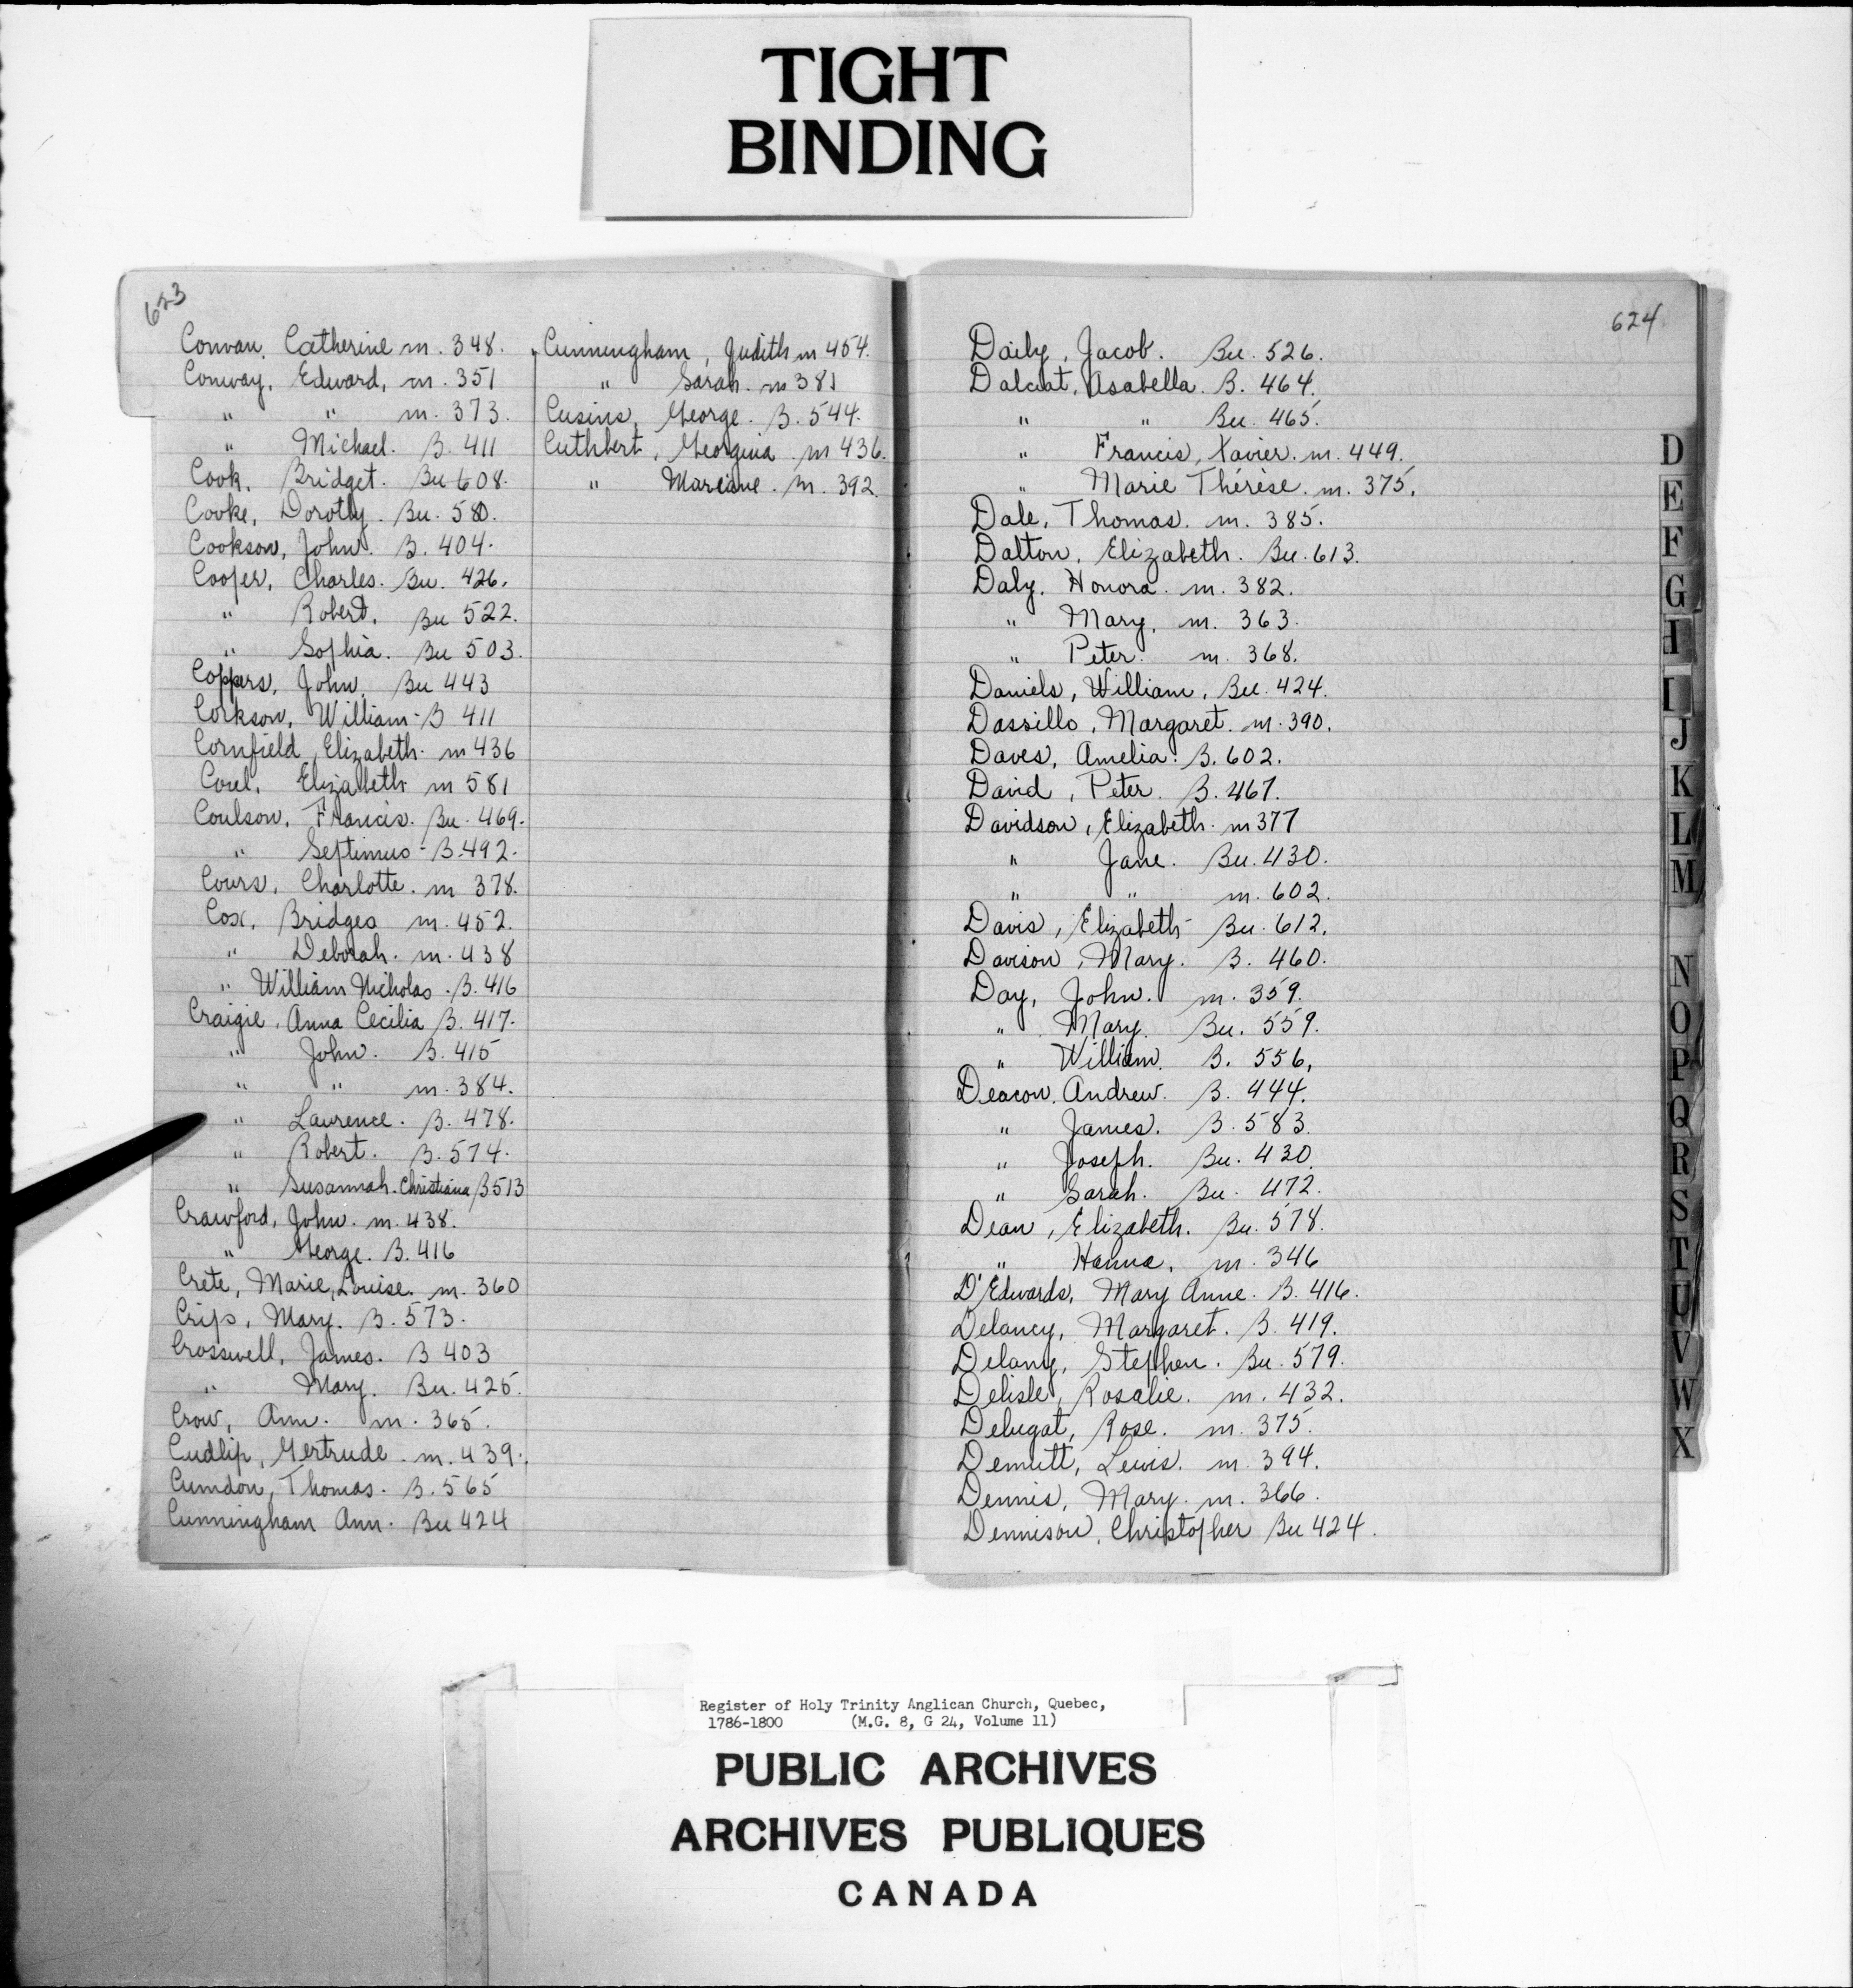 TIGHT
BINDING
623
Convan, Catherine m. 348.
Conway, Edward, m. 351
" " m. 373.
" Michael. B. 411
Cook, Bridget. Bu 608.
Cooke, Dorothy. Bu. 580.
Cookson, John. B. 404.
Cooper, Charles. Bu. 426.
" Robert. Bu 522.
" Sophia. Bu 503.
Coppers, John. Bu 443
Corkson, William - B 411
Cornfield, Elizabeth. m 436
Corel, Elizabeth m 581
Coulson, Francis. Bu. 469.
" Septimus - B. 492.
Cours, Charlotte. m 378.
Cox, Bridges m. 452.
" Deborah. m. 438
" William Nicholas. B. 416
Craigie, Anna Cecilia B. 417.
" John. B. 415
" " m. 384.
" Lawrence. B. 478.
" Robert. B. 574.
" Susannah. Christiana B 513
Crawford, John. m. 438.
" George. B. 416
Crete, Marie, Louise. m. 360
Crips, Mary. B. 573.
Crosswell, James. B 403
" Mary. Bu. 425.
Crow, Ann. m. 365.
Cudlip, Gertrude. m. 439.
Cumdon, Thomas. B. 565
Cunningham Ann. Bu 424
Cunningham, Judith m 454.
" Sarah. m 381
Cusins, George. B. 544.
Cuthbert, Georgina m 436.
" Mariane. m. 392.
624
Daily, Jacob. Bu. 526.
Dalciat, Asabella. B. 464.
" " Bu. 465.
" Francis, Xavier. m. 449.
" Marie Thérèse. m. 375.
Dale, Thomas. m. 385.
Dalton, Elizabeth. Bu. 613.
Daly, Honora. m. 382.
" Mary, m. 363.
" Peter. m. 368.
Daniels, William, Bu. 424.
Dassillo, Margaret. m. 390.
Daves, Amelia. B. 602.
David, Peter. B. 467.
Davidson, Elizabeth. m 377
" Jane. Bu. 430.
" " m. 602.
Davis, Elizabeth - Bu. 612.
Davison, Mary. B. 460.
Day, John. m. 359.
" Mary. Bu. 559.
" William. B. 556.
Deacon, Andrew. B. 444.
" James. B. 583.
" Joseph. Bu. 430.
" Sarah. Bu. 472.
Dean, Elizabeth. Bu. 578.
" Hanna, m. 346
D'Edwards, Mary Anne. B. 416.
Delancy, Margaret. B. 419.
Delany, Stephen. Bu. 579.
Delisle, Rosalie. m. 432.
Delugat, Rose. m. 375.
Demutt, Lewis. m. 394.
Dennis, Mary. m. 366.
Dennison, Christopher Bu 424.
D
E
F
G
H
I
J
K
L
M
N
O
P
Q
R
S
T
U
V
W
X
Register of Holy Trinity Anglican Church, Quebec,
1786-1800 (M.G. 8, G 24, Volume 11)
PUBLIC ARCHIVES
ARCHIVES PUBLIQUES
CANADA